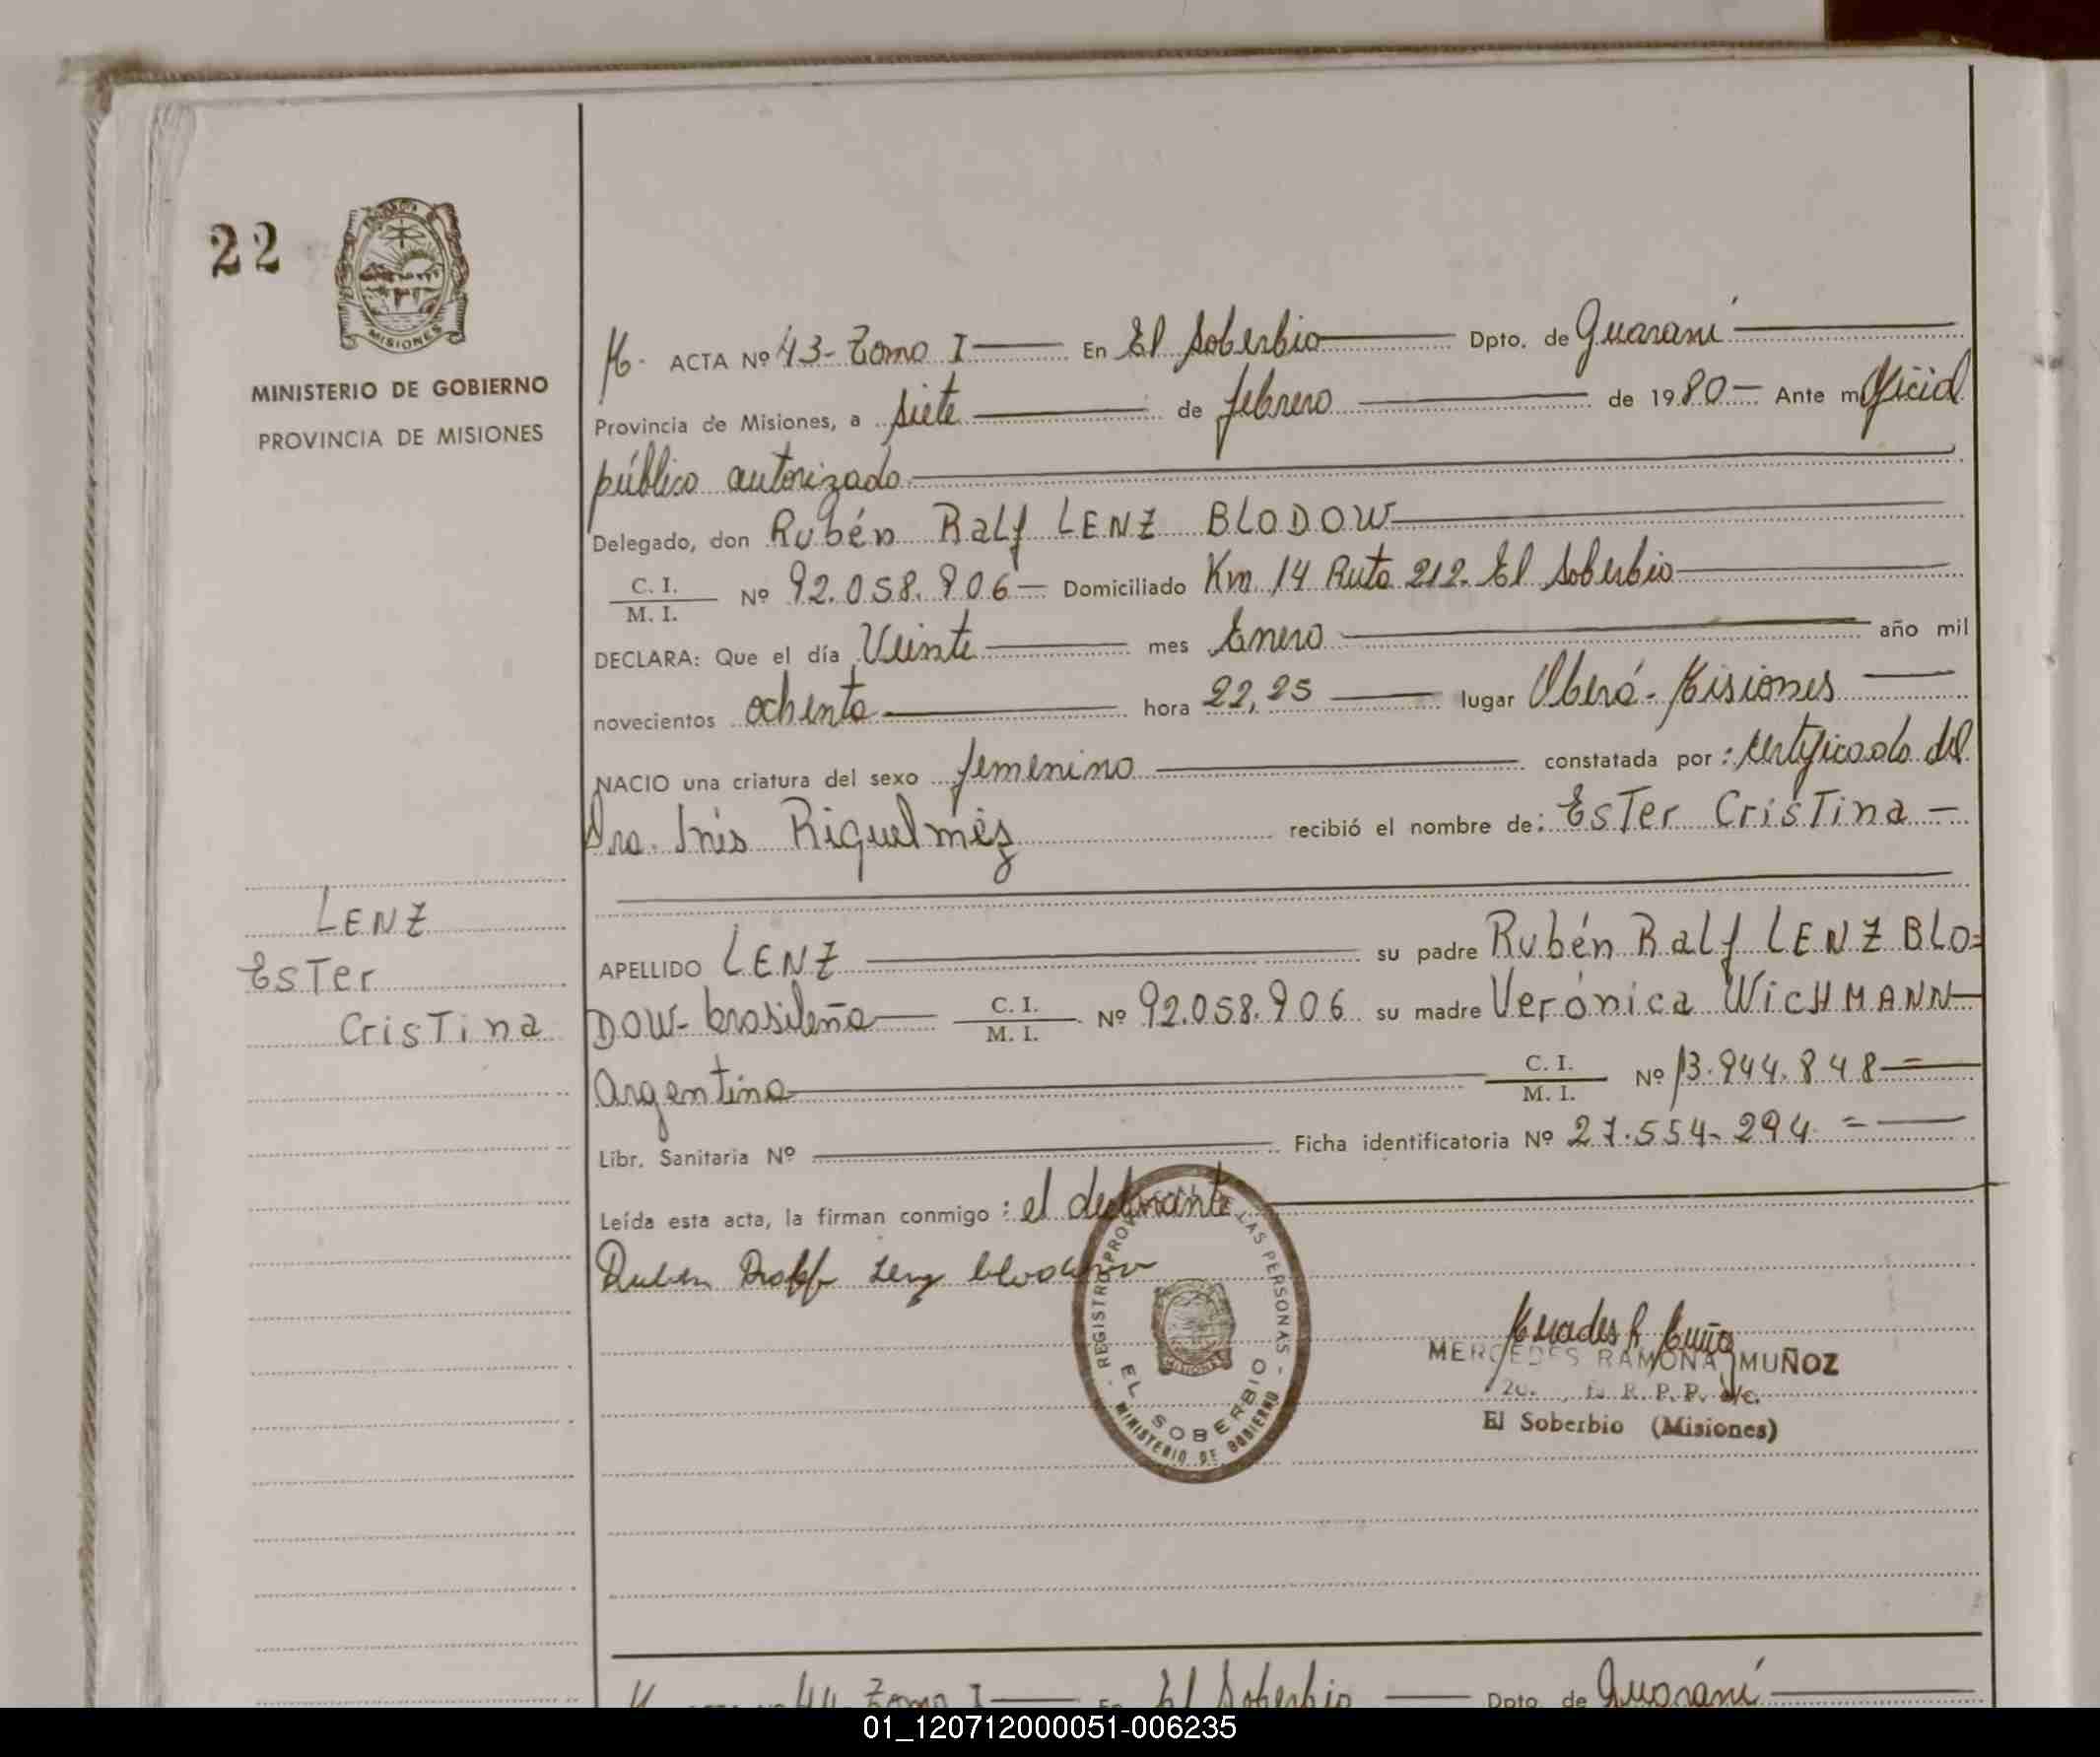 22
MISIONES
MINISTERIO DE GOBIERNO
PROVINCIA DE MISIONES
LENZ
Ester
Cristina
ACTA Nº 43- Tomo I En El Soberbio Dpto. de Guaraní
Provincia de Misiones, a siete de febrero de 1980 Ante mi Oficial
público autorizado
Delegado, don Rubén Ralf LENZ BLODOW
C. I.
M. I. Nº 92.058.906 Domiciliado Km 14 Ruta 212. El Soberbio
DECLARA: Que el día Veinte mes Enero año mil
novecientos ochenta hora 22,25 lugar Oberá - Misiones
NACIO una criatura del sexo femenino constatada por: certificado del
Dra. Inés Riquelmez recibió el nombre de: Ester Cristina
APELLIDO LENZ su padre Rubén Ralf LENZ BLO=
DOW- brasileño C. I. M. I. Nº 92.058.906 su madre Verónica WICHMANN
Argentina C. I. M. I. Nº 13.944.848 =
Libr. Sanitaria Nº Ficha identificatoria Nº 27.554.294 =
Leída esta acta, la firman conmigo: el declarante
Ruben Lenz
REGISTRO PROV LAS PERSONAS
EL SOBERBIO
MINISTERIO DE GOBIERNO
MERCEDES RAMONA MUÑOZ
R. P. P.
El Soberbio (Misiones)
44 Tomo I En El Soberbio Dpto. de Guaraní
01_120712000051-006235